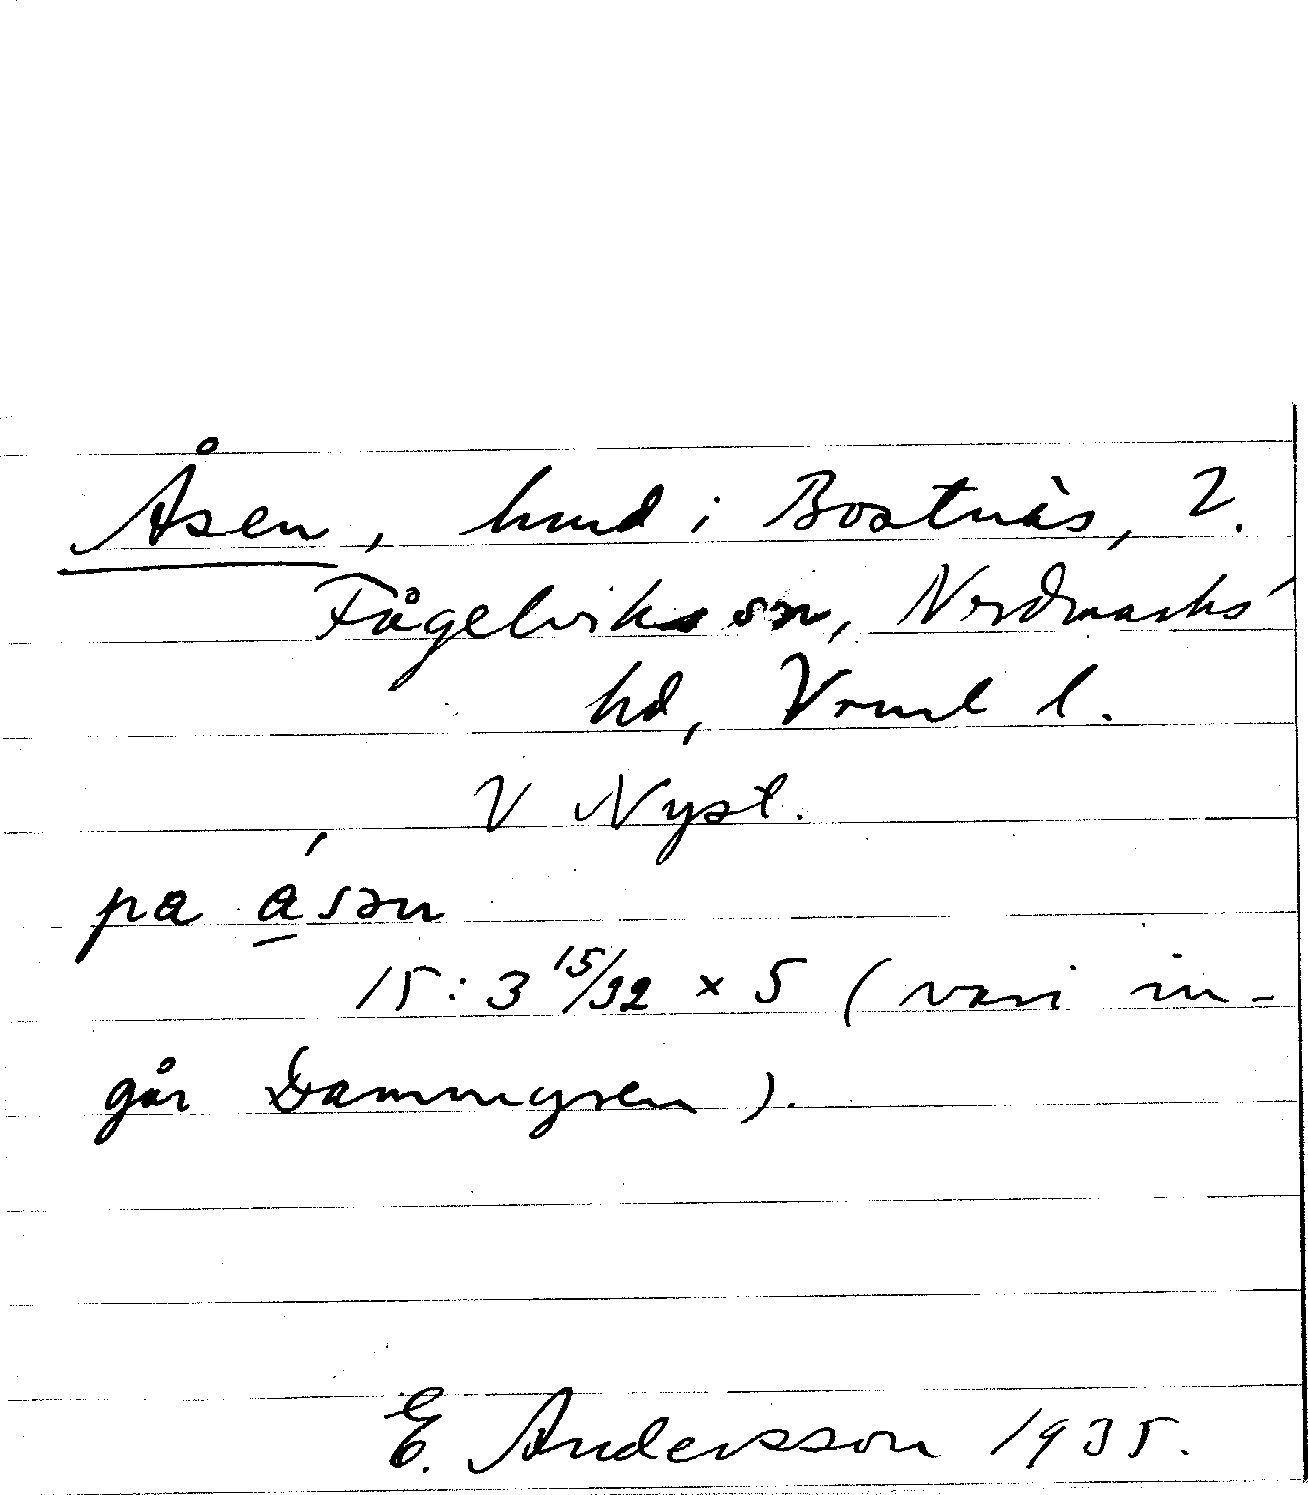 Åsen, hmd i Bostnäs, V.
Fågelviks sn, Nordmarks
hd, Vrml l.
V Nyst.
pa ásən
15:3 15/32 × 5 (vari in-
går Dammyren).
E. Andersson 1935.